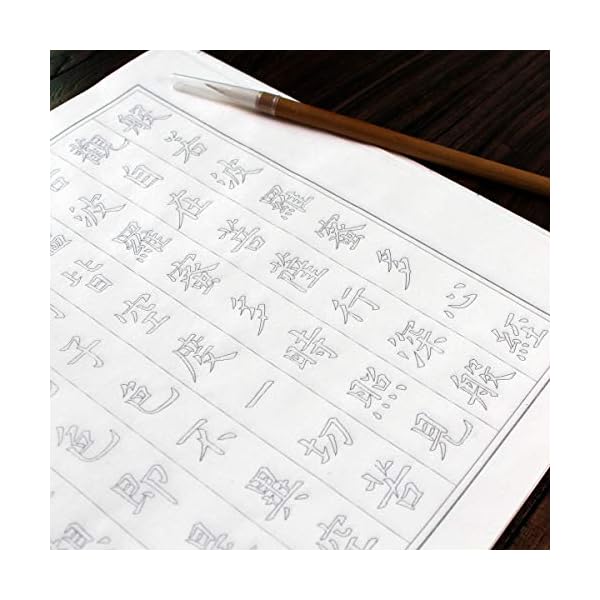 般若波羅蜜多心經
觀自在菩薩行深般
波羅蜜多時照見
皆空度一切苦
子色不異空
色即